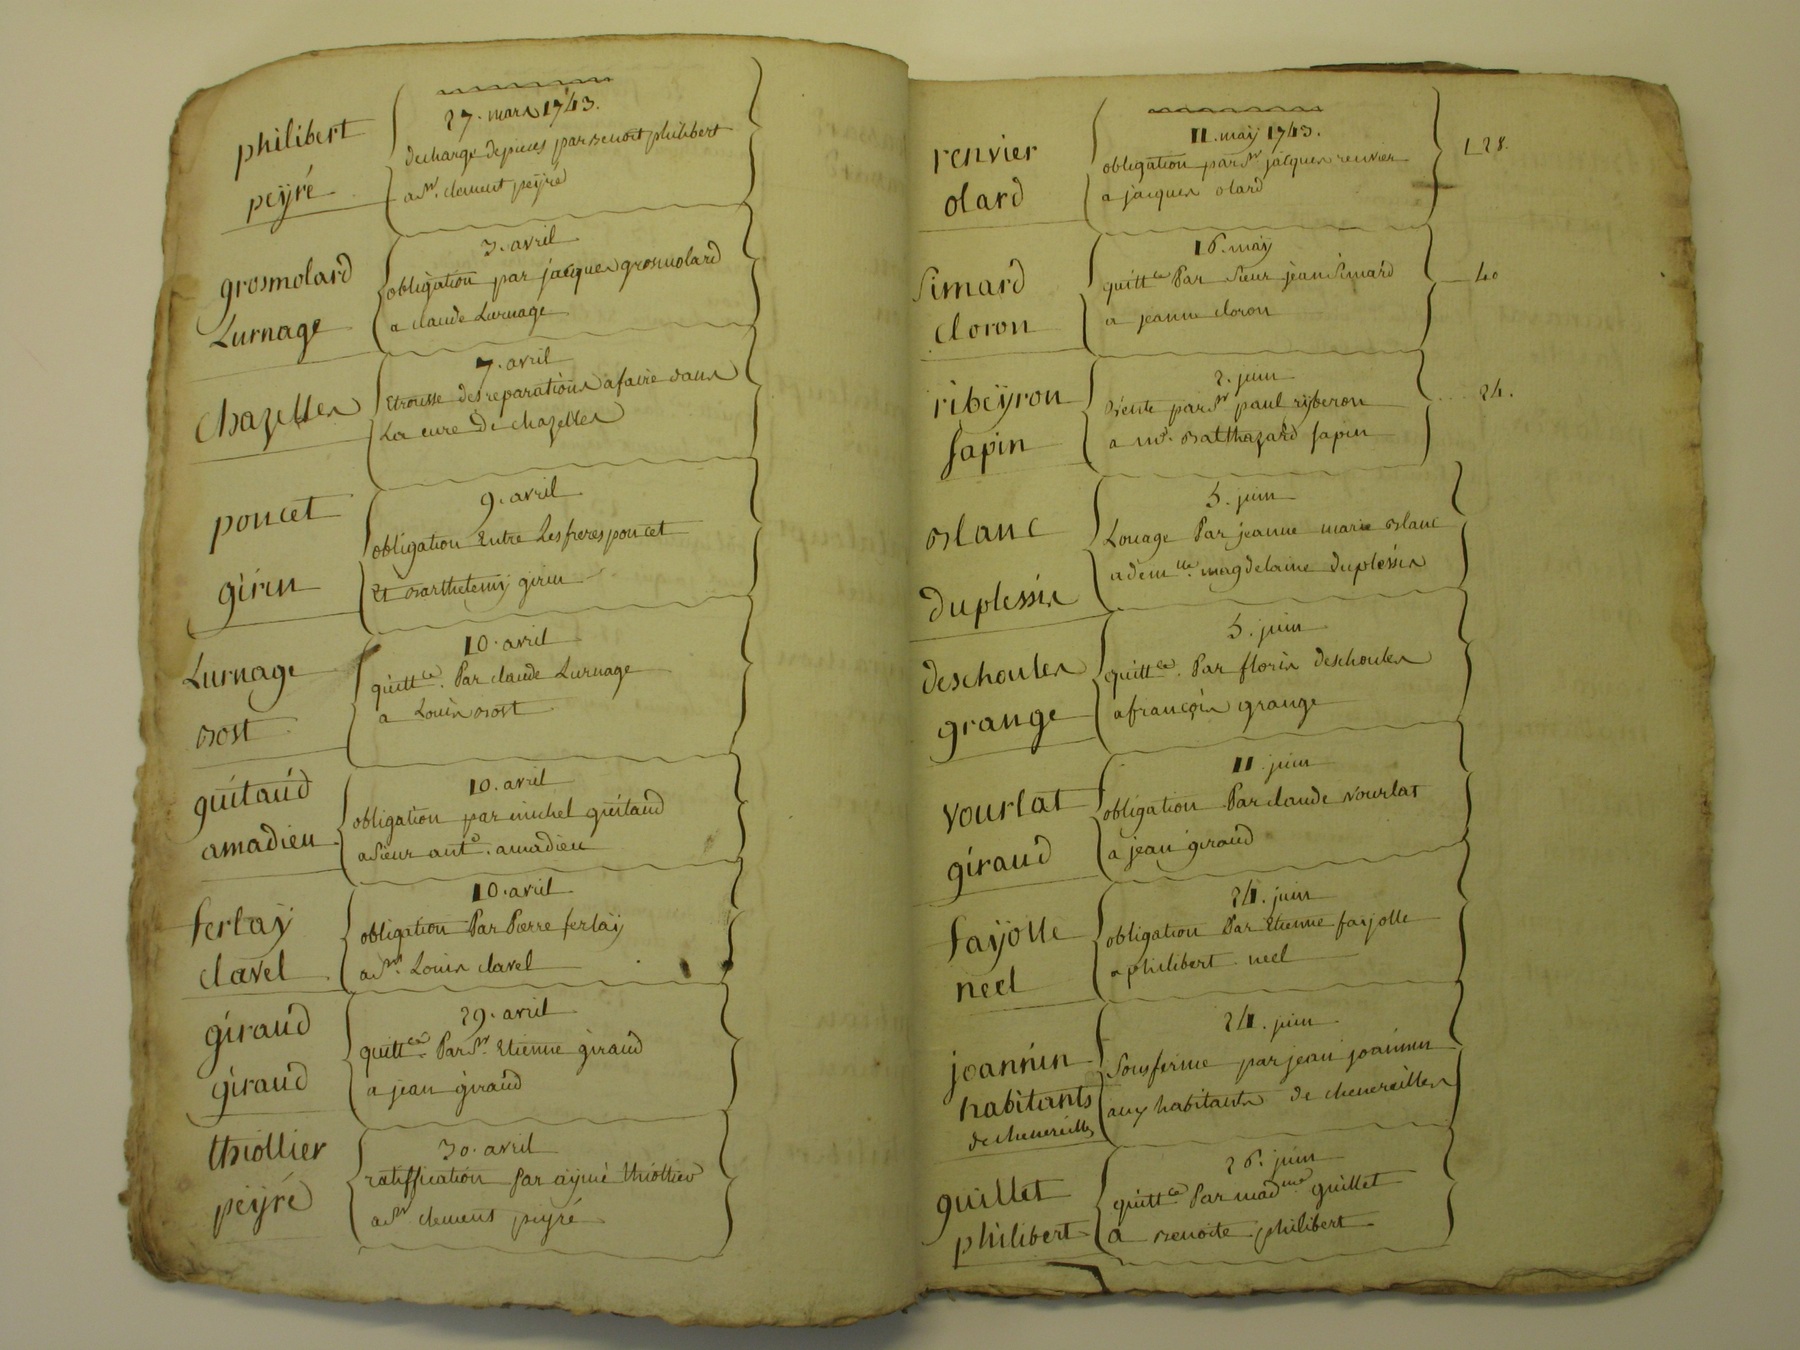 philibert
peÿré
27. mars 1743.
decharge depieces par benoit philibert
a Sr. clement peÿré
grosmolard
Lurnage
3. avril
obligation par jacques grosmolard
a claude Lurnage
Chazelles
7. avril
Etrousse des reparations afaire dans
La cure de chazelles
poncet
girin
9. avril
obligation Entre Les freres poncet
Et barthelemÿ girin
Lurnage
bost
10. avril
quittce. Par claude Lurnage
a Louis bost
guitaud
amadieu
10. avril
obligation par michel guitaud
a Sieur ante. amadieu
ferlaÿ
clavel
10. avril
obligation Par Pierre ferlaÿ
a Sr. Louis clavel
giraud
giraud
29. avril
quittce. Par Sr. Etienne giraud
a jean giraud
thiollier
peÿré
30. avril
ratiffication Par aÿmé thiollier
a Sr clement peÿré
renvier
olard
11. maÿ 1743.
obligation par Sr jacques renvier
a jacques olard
128.
Simard
cloron
16. maÿ
quittce Par Sieur jean Simard
a jeanne cloron
40
ribeÿron
sapin
2. juin
vente par Sr paul rÿberon
a Mr. balthazard sapin
24.
blanc
duplessis
5. juin
Louage Par jeanne marie blanc
a demlle. magdelaine duplessis
deschoules
grange
5. juin
quittce. Par floris deschoules
a françois grange
vourlat
giraud
11. juin
obligation Par claude vourlat
a jean giraud
faÿolle
neel
24. juin
obligation Par Etienne faÿolle
a philibert neel
joannin
habitants
de chenereilles
24. juin
Sousferme par jean joannin
aux habitants de chenereilles
guillet
philibert
26. juin
quittce Par madme guillet
a benoite philibert